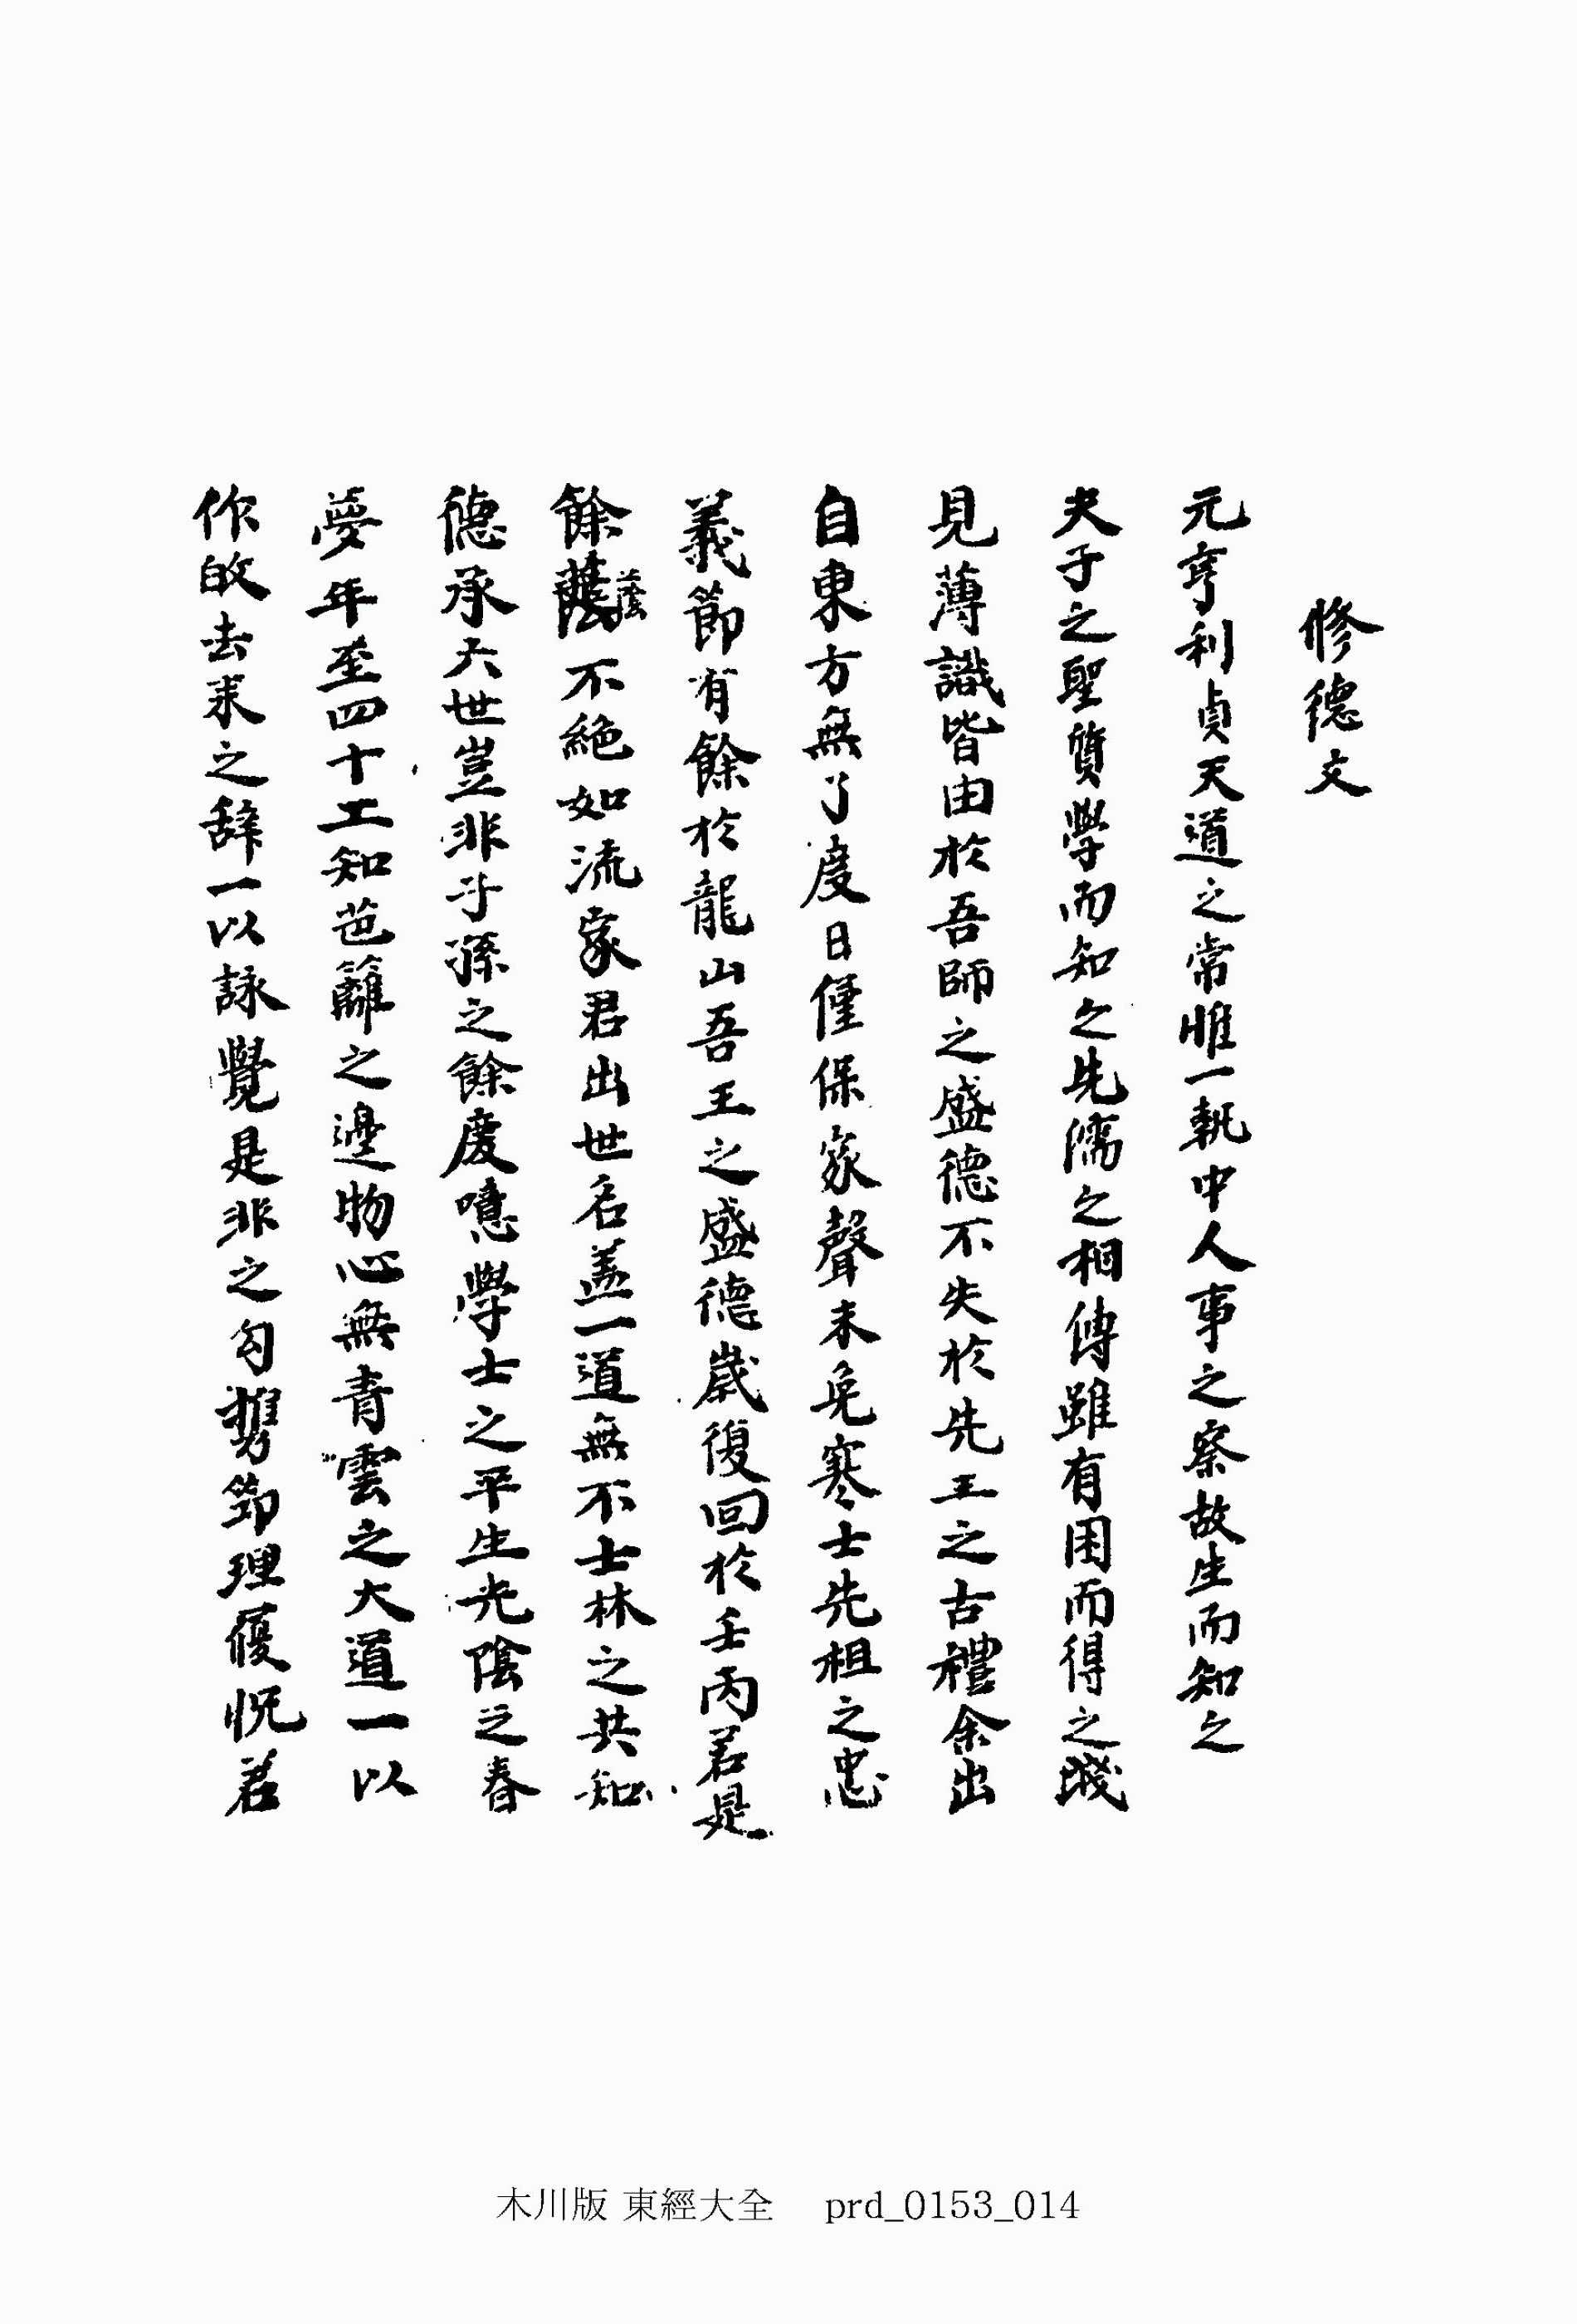 修德文
元亨利貞天道之常惟一執中人事之察故生而知之
夫子之聖質學而知之先儒之相傳雖有困而得之淺
見薄識皆由於吾師之盛德不失於先王之古禮余出
自東方無了度日僅保家聲未免寒士先祖之忠
義節有餘於龍山吾王之盛德歲復回於壬丙若是
餘蔭蔭不絶如流家君出世名盖一道無不士林之共知
德承六世豈非子孫之餘慶噫學士之平生光陰之春
夢年至四十工知芭籬之邊物心無青雲之大道一以
作皈去来之辞一以詠覺是非之句携笻理履怳若
木川版 東經大全 prd_0153_014